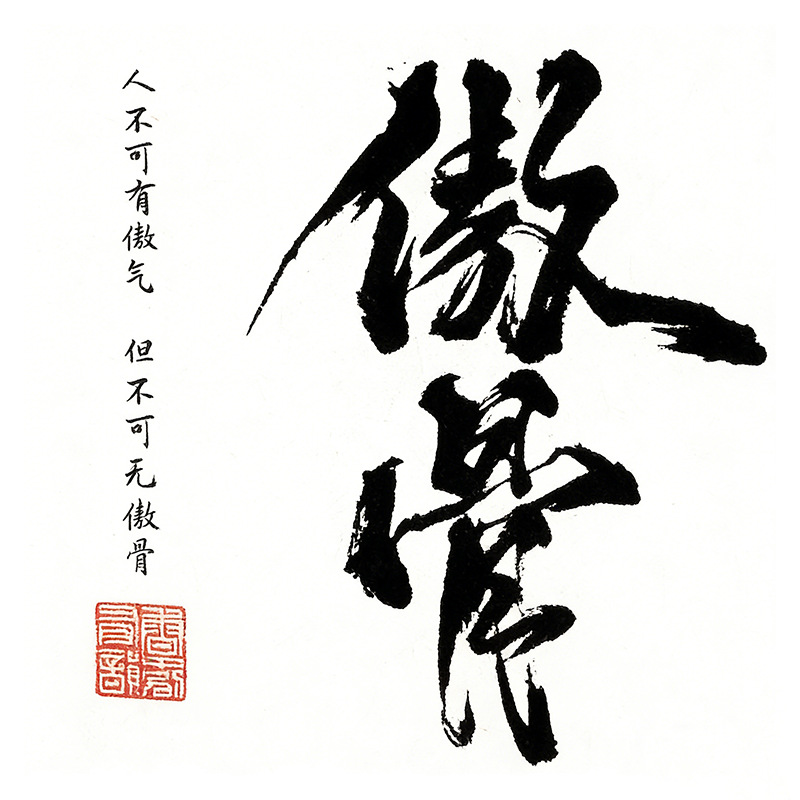 傲骨
人不可有傲气 但不可无傲骨